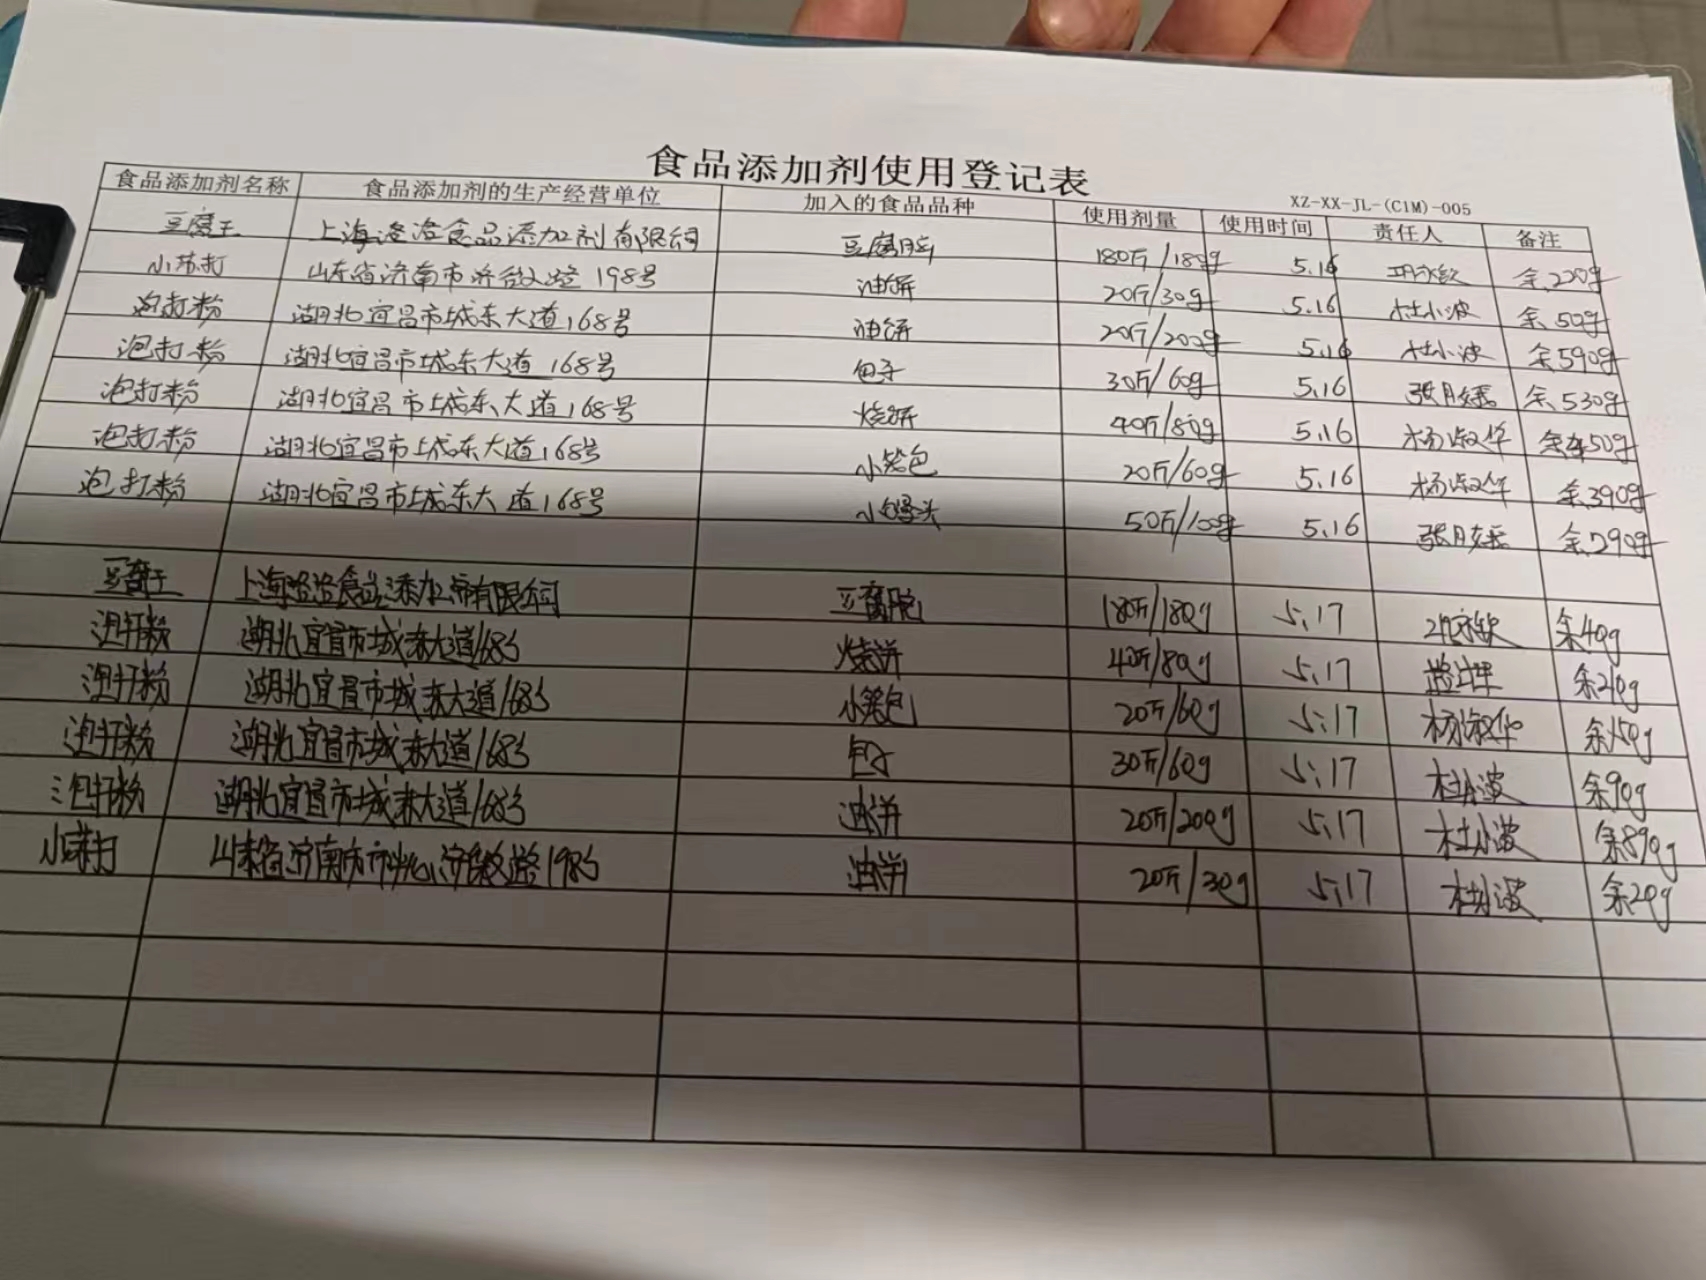 食品添加剂使用登记表
XZ-XX-JL-(C1M)-005
食品添加剂名称 食品添加剂的生产经营单位 加入的食品品种 使用剂量 使用时间 责任人 备注
豆腐王 上海 食品添加剂有限公司 豆腐脑 180斤/180g 5.16 余220g
小苏打 山东省济南市 198号 油饼 20斤/30g 5.16 杜小波 余50g
泡打粉 湖北宜昌市城东大道168号 油饼 20斤/200g 5.16 杜小波 余590g
泡打粉 湖北宜昌市城东大道168号 包子 30斤/60g 5.16 张月 余530g
泡打粉 湖北宜昌市城东大道168号 烧饼 40斤/80g 5.16 杨淑华 50g
泡打粉 湖北宜昌市城东大道168号 小笼包 20斤/60g 5.16 杨淑华 余390g
泡打粉 湖北宜昌市城东大道168号 小馒头 50斤/100g 5.16 张月 余290g
豆腐王 上海 食品添加 有限公司 豆腐脑 180斤/180g 5.17 余40g
泡打粉 湖北宜昌市城东大道168号 烧饼 40斤/80g 5.17
泡打粉 湖北宜昌市城东大道168号 小笼包 20斤/60g 5.17 杨淑华
泡打粉 湖北宜昌市城东大道168号 包子 30斤/60g 5.17 杜小波 余90g
泡打粉 湖北宜昌市城东大道168号 油饼 20斤/200g 5.17 杜小波 余890g
小苏打 山东省济南市 198号 油饼 20斤/30g 5.17 杜小波 余20g